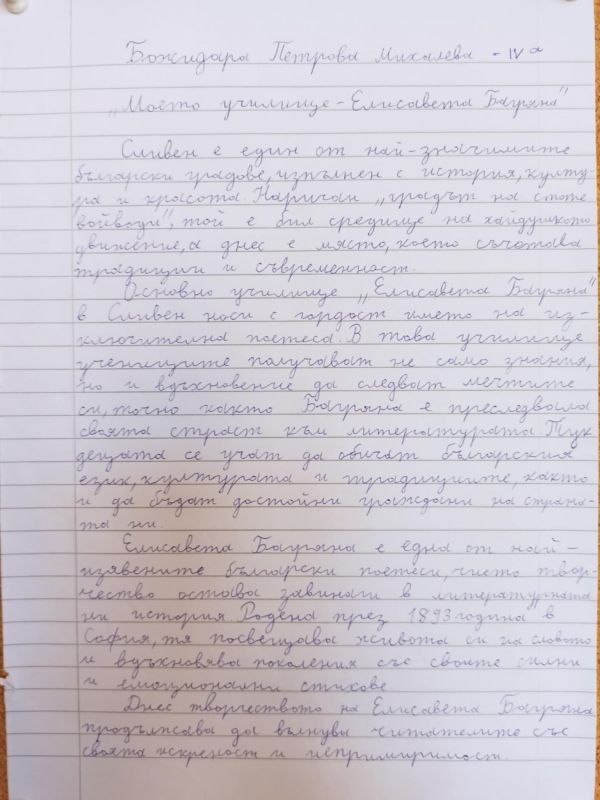 Божидара Петрова Михалева - IV а
„Моето училище - Елисавета Багряна"
Сливен е един от най-значимите
български градове, изпълнен с история, култу-
ра и красота. Наричан „градът на стоте
войводи", той е бил средище на хайдушкото
движение, а днес е място, което съчетава
традиции и съвременност.
Основно училище „Елисавета Багряна"
в Сливен носи с гордост името на из-
ключителна поетеса. В това училище
учениците получават не само знания,
но и вдъхновение да следват мечтите
си, точно както Багряна е преследвала
своята страст към литературата. Тук
децата се учат да обичат българския
език, културата и традициите, както
и да бъдат достойни граждани на страна-
та ни.
Елисавета Багряна е една от най-
изявените български поетеси, чието твор-
чество остава завинаги в литературната
ни история. Родена през 1893 година в
София, тя посвещава живота си на словото
и вдъхновява поколения със своите силни
и емоционални стихове
Днес творчеството на Елисавета Багряна
продължава да вълнува читателите със
своята искреност и непримиримост.